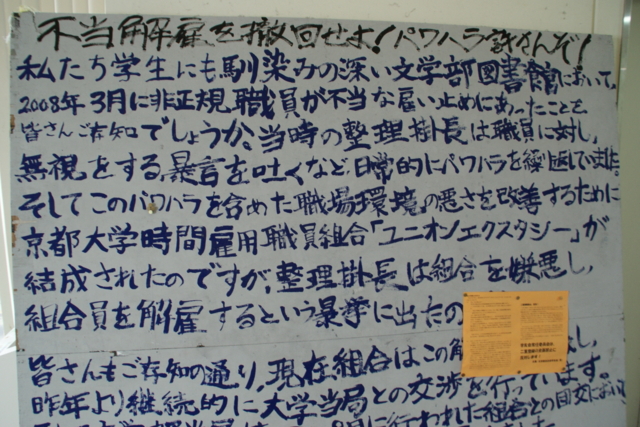 不当解雇を撤回せよ!パワハラ許さんぞ!
私たち学生にも馴染みの深い文学部図書館において、
2008年3月に非正規職員が不当な雇い止めにあったことを
皆さんご存知でしょうか。当時の整理掛長は職員に対し、
無視をする、暴言を吐くなど、日常的にパワハラを繰り返していました。
そしてこのパワハラを含めた職場環境の悪さを改善するために
京都大学時間雇用職員組合「ユニオンエクスタシー」が
結成されたのですが、整理掛長は組合を嫌悪し、
組合員を解雇するという暴挙に出たの
皆さんもご存知の通り、現在組合はこの解 し、
昨年より継続的に大学当局との交渉を行っています。
月に行われた組合との団交において